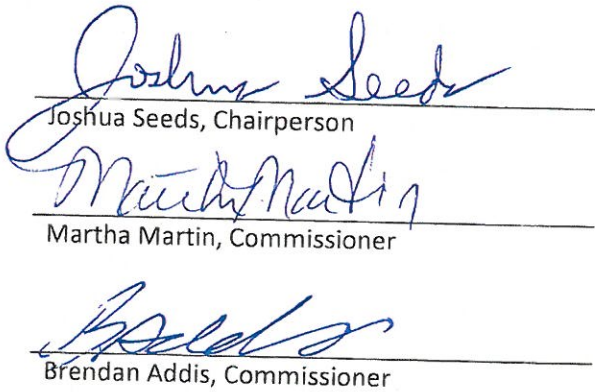 Joshua Seeds
Joshua Seeds, Chairperson
Martha Martin
Martha Martin, Commissioner
B Addis
Brendan Addis, Commissioner